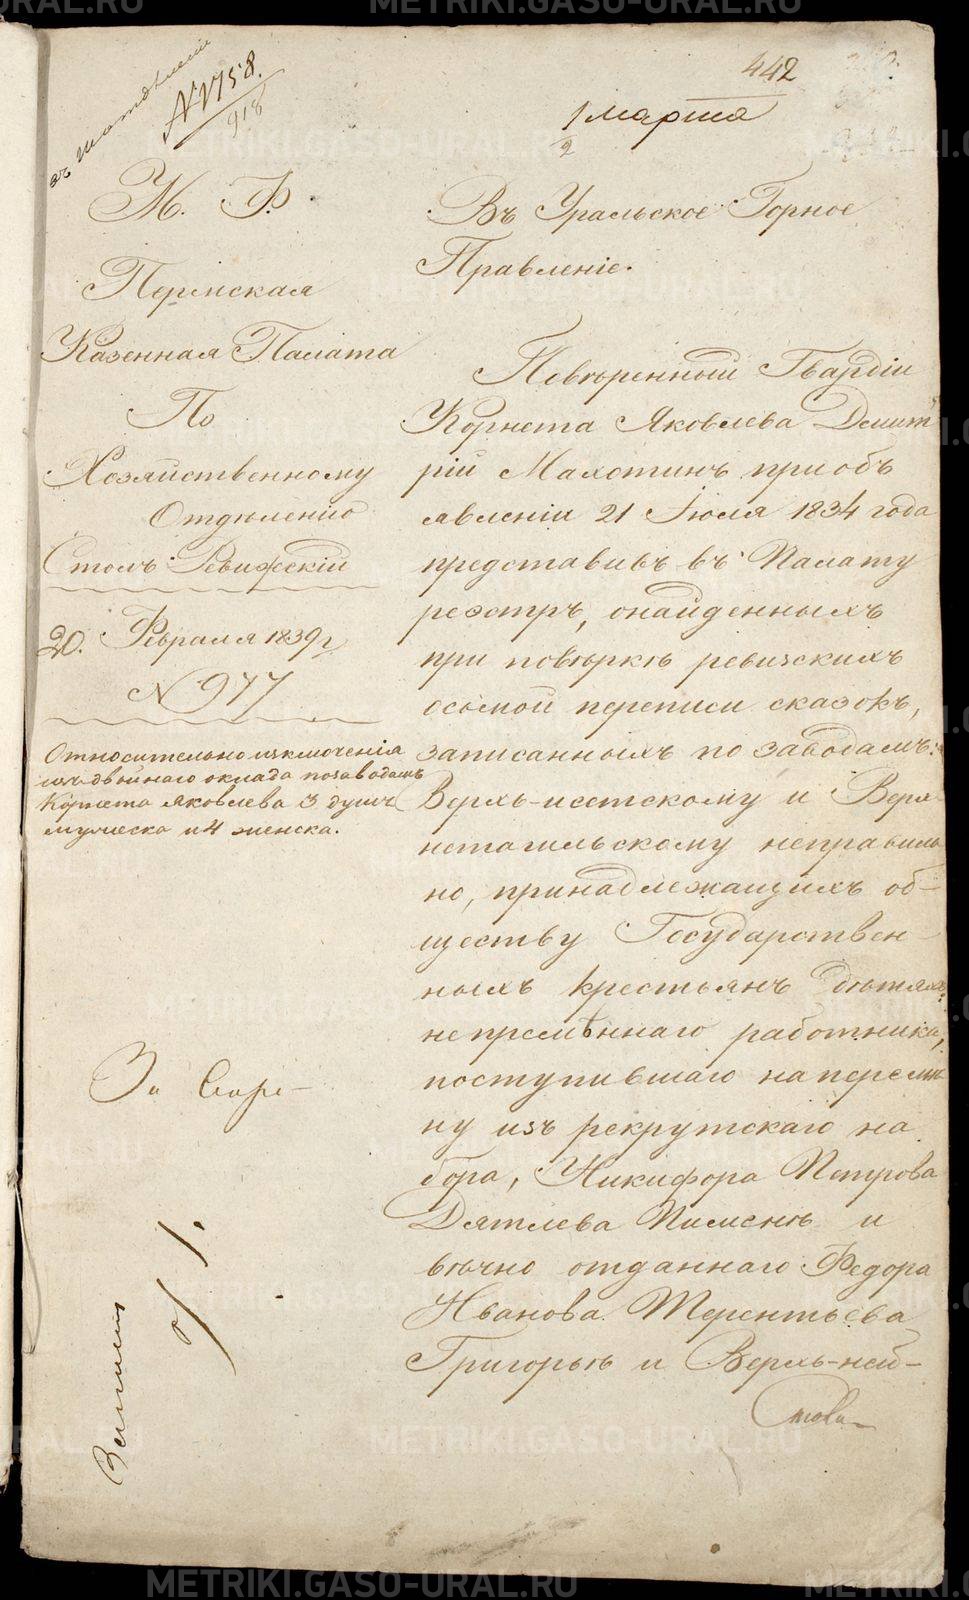 442
N 1758.
918
1 марта
2
М. Ф.
Пермская
Казенная Палата
По
Хозяйственному
Отдѣленію
Столъ Ревижскій
20. Февраля 1839 г
N 977
Относительно изключенія
изъ двойнаго оклада по заводамъ
Корнета Яковлева 3 душъ
мужеска и 4 женска.
Въ Уральское Горное
Правленіе.
Повѣренный Гвардіи
Корнета Яковлева Дмит
рій Махотинъ при объ
явленіи 21 Іюля 1834 года
представивъ въ Палату
реэстръ, о найденныхъ
при повѣркѣ ревизскихъ
осьмой переписи сказокъ,
записанныхъ по заводамъ:
Верхъ-исетскому и Верх
нетагильскому неправиль
но, принадлежащихъ об-
ществу Государствен-
ныхъ крестьянъ дѣтяхъ:
непремѣннаго работника,
поступившаго на перемѣ
ну изъ рекрутскаго на
бора, Никифора Петрова
Дятлева Пименѣ и
вѣчно отданнаго Федора
Иванова Терентьева
Григорьѣ и Верхъ-ней-
METRIKI.GASO-URAL.RU